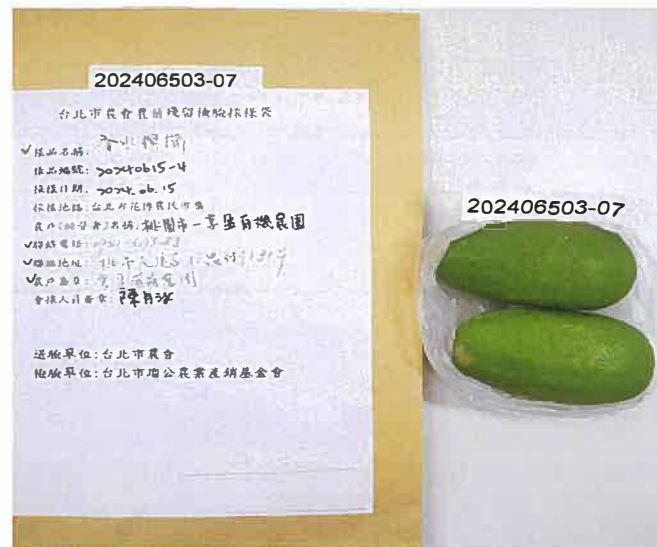 202406503-07
台北市農會農藥殘留檢驗採樣袋
✓樣品名稱: 香水檸檬
樣品編號: 20240615-4
採樣日期: 2024.06.15
採樣地點: 台北市花博農民市集
農戶(經營者)名稱: 桃園市一享盈有機農園
✓聯絡電話:
✓聯絡地址:
✓農戶簽章:
會採人員簽章:
送驗單位: 台北市農會
檢驗單位: 台北市瑠公農業產銷基金會
202406503-07